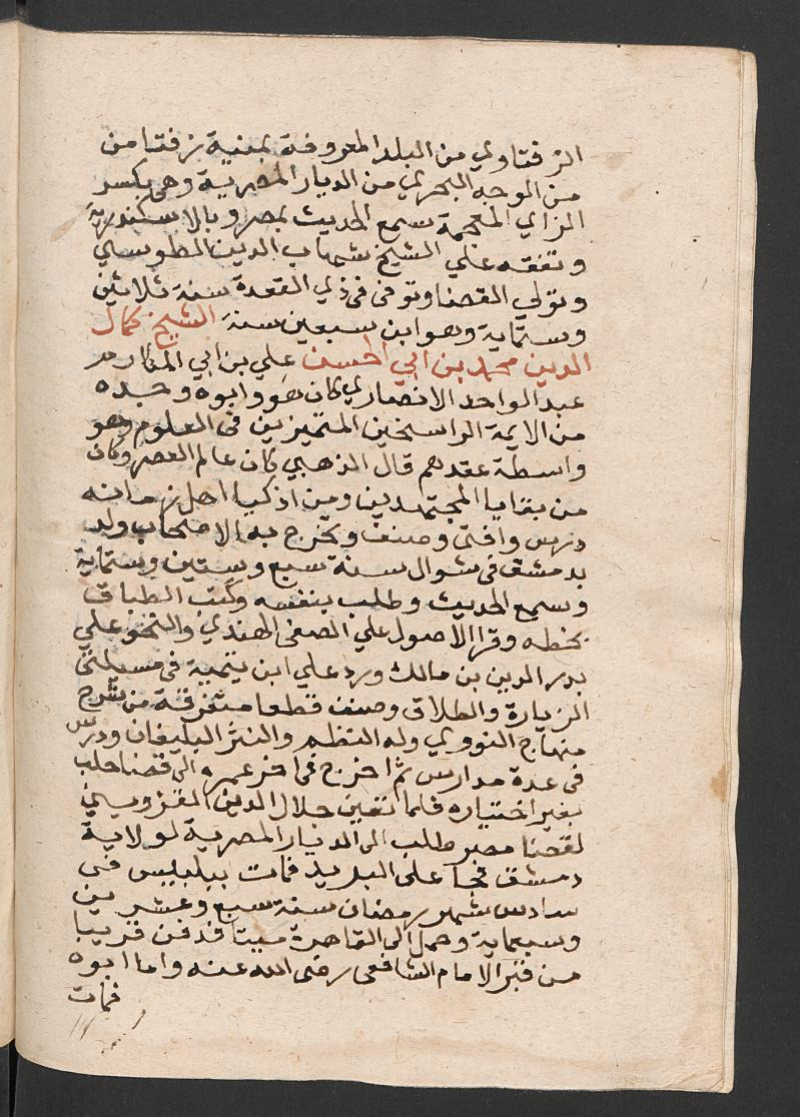 الزفتاوي من البلد المعروفة بمنية زفتا من
من الوجه البحري من الديار المصرية وهي بكسر
الزاي المعجمة سمع الحديث بمصر وبالاسكندرية
وتفقه علي الشيخ شهاب الدين الطوسي
وتولي القضا وتوفى فى ذي القعدة سنة ثلاثين
وستماية وهو ابن سبعين سنة الشيخ كمال
الدين محمد بن ابي الحسن علي بن ابي المكارم
عبد الواحد الانصاري كان هو وابوه وجده
من الايمة الراسخين المتميزين فى العلوم وهو
واسطة عقدهم قال الذهبي كان عالم العصر وكان
من بقايا المجتهدين ومن اذكيا اهل زمانه
درس وافتى وصنف وتخرج به الاصحاب ولد
بدمشق فى شوال سنة سبع وستين وستماية
وسمع الحديث وطلب بنفسه وكتب الطباق
بخطه وقرا الاصول علي الصفى الهندي والنحو علي
بدر الدين بن مالك ورد علي ابن تيمية فى مسيلتى
الزيارة والطلاق وصنف قطعا متفرقة من شرح
منهاج النووي وله النظم والنثر البليغان ودرس
فى عدة مدارس ثم اخرج فى اخر عمره الى قضا حلب
بغير اختياره فلما تعين جلال الدين القزويني
لقضا مصر طلب الى الديار المصرية لولاية
دمشق فجا على البريد فمات ببلبيس فى
سادس شهر رمضان سنة سبع وعشرين
وسبعماية وحمل الى القاهرة ميتا فدفن قريبا
من قبر الامام الشافعى رضى الله عنه واما ابوه
فمات